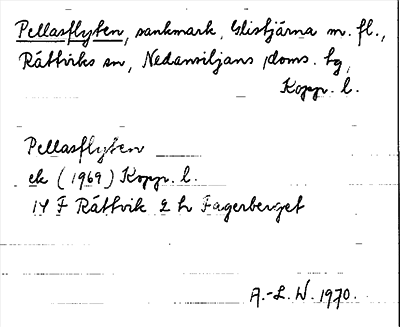 Pellasflyten, sankmark, Glistjärna m. fl.,
Rättviks sn, Nedansiljans doms. tg,
Kopp. l.
Pellasflyten
ek (1969) Kopp. l.
14 F Rättvik 2 h Fagerberget
A.-L. W. 1970.